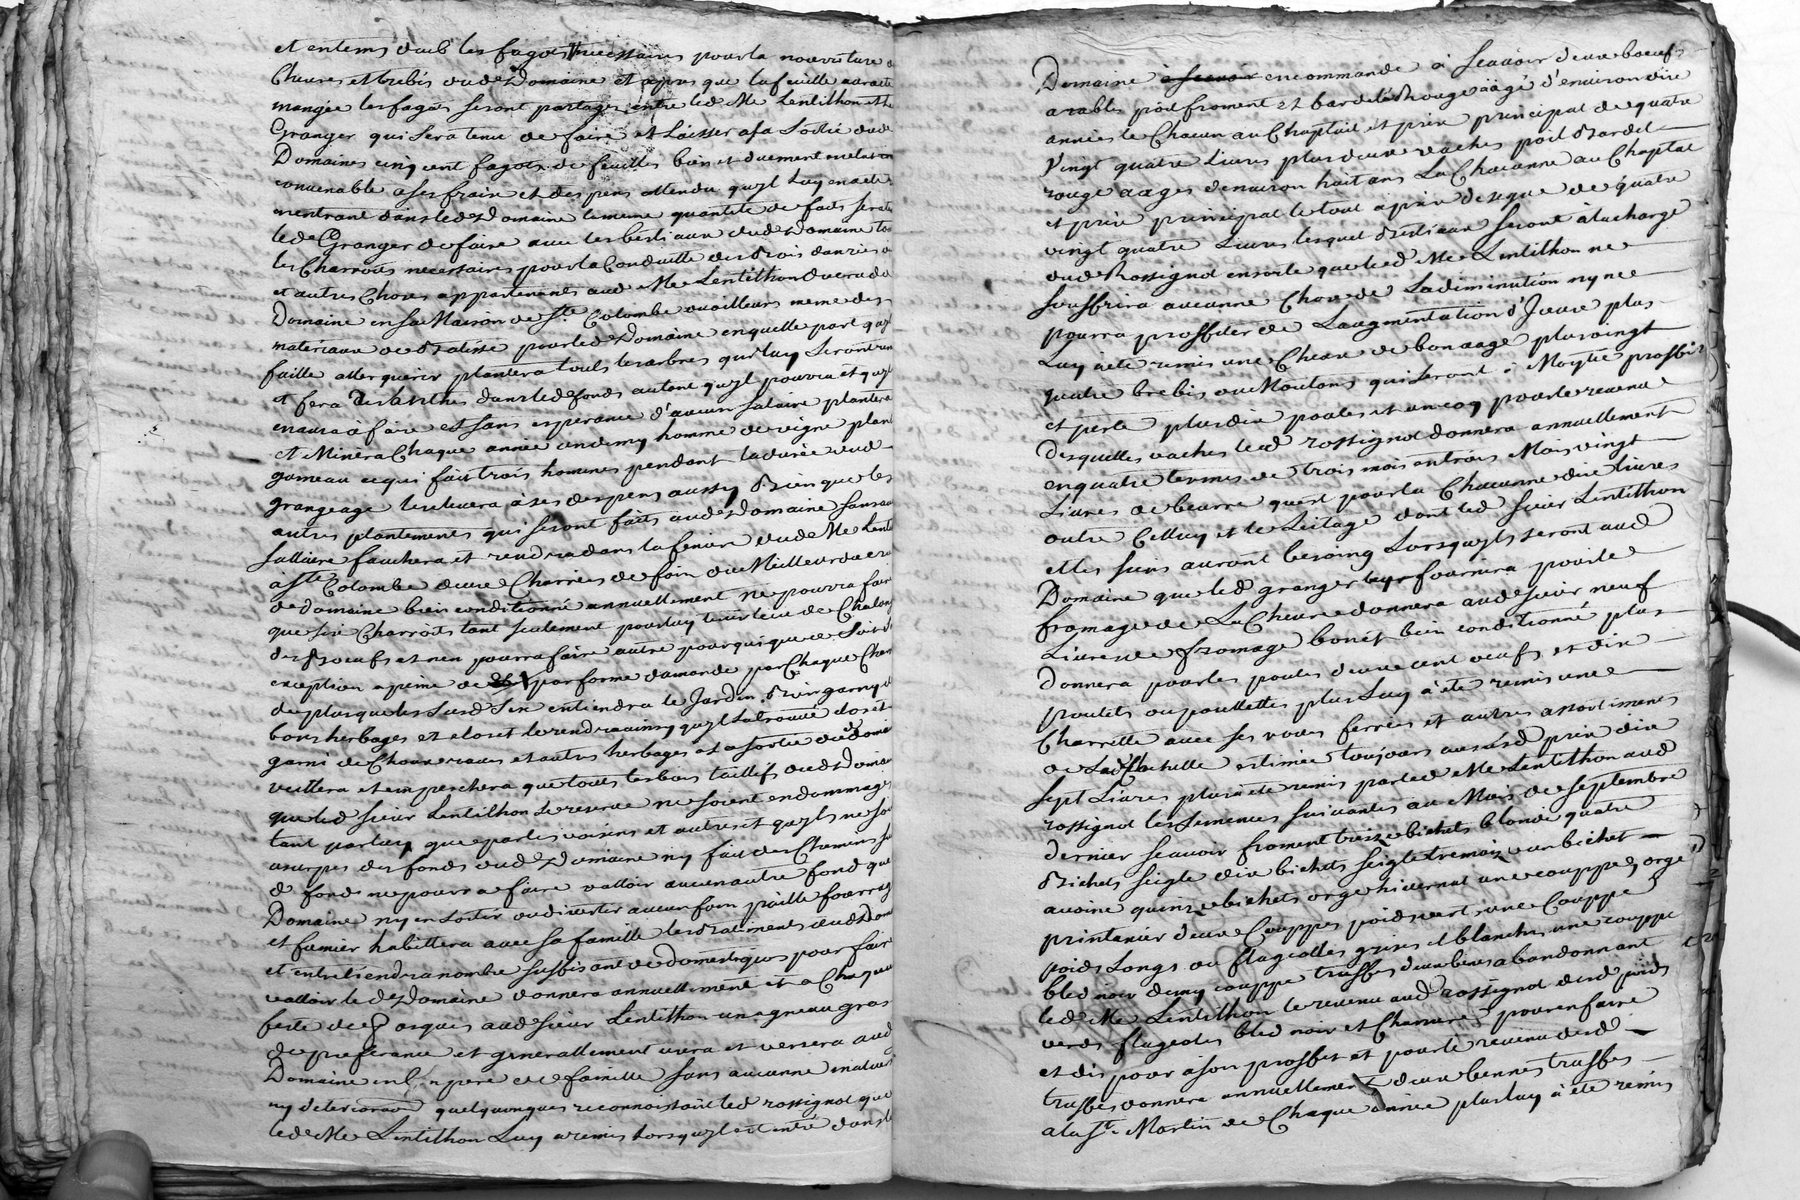 et en tems dud les fagots necessaires pour la nourriture
Chevres et brebis dud Domaine et apres que la feuille aura ete
mangée les fagots seront partagés entre led Me Lentilhon et le
Granger qui sera tenu de faire et Laisser a sa sortie dud
Domaines cinq cent fagots de feuilles bien et duement
convenable a ses fraix et depens attendu qu'yl Luy en a ete
entrant dans led Domaine la meme quantité de faits sera
led Granger de faire avec les bestiaux dud Domaine
les Charrois necessaires pour la Conduitte des Bois danrées
et autres Choses appartenants aud Me Lentilhon
Domaine en sa Maison de Ste Colombe ou ailleurs meme des
materiaux de Batisse pour led Domaine en quelle part qu'yl
faille aller querir plantera touts les arbres qui luy seront
et fera des dans led fonds autant qu'yl pourra et qu'yl
en aura à faire et sans esperance d'aucun salaire plantera
et Minera Chaque année un demy homme de vigne
gameau ce qui fait trois hommes pendant la durée dud
grangeage les levera à ses despens aussy Bien que les
autres plantements qui seront faits aud Domaine sans
sallaire fauchera et rendra dans la feniere dud Me
a Ste Colombe deux Charrées de foin du Meilleur
de domaine bien conditionné annuellement ne pourra faire
que six Charrois tant seulement pour luy
des Boeufs et n'en pourra faire autre pour qui que ce soit
exception a peine de par forme d'amande par Chaque
de plus que les susd six entiendra le Jardin Bien garny
bons herbages et clos et le rendra ainsy qu'yl la trouvé clos et
garni de Choux raves et autres herbages a sa sortie dud
veillera et empechera que touts les bois taillifs dud Domaine
que led sieur Lentilhon se reserve ne soient endommagés
tant par luy que par les voisins et autres et qu'yls ne
usurpes des fonds dud Domaine ny fait des Chemins
d fond ne pourra faire valloir aucun autre fond que
Domaine ny en sortir ou divertir aucun foin paille fourrage
et fumier habittera avec sa famille les Batiments dud
et entretiendra nombre suffisant de domestiques pour faire
valloir led Domaine donnera annuellement et a Chaque
feste de Pasques aud sieur Lentilhon un agneau gras
de preferance et generallement usera et versera aud
Domaine en bon pere de famille sans aucunne
ny deterioration quelquonques reconnoissant led rossignol que
led Me Lentilhon Luy a remis Lorsqu'yl est entré dans
Domaine en commande à scavoir deux boeufs
arables poil froment et bardelé Rouge aagé d'environ dix
années le Chacun au Chaptail et prix principal de quatre
Vingt quatre Livres plus deux vaches poil Bardel
rouge aages d'environ huit ans La Chacunne au Chaptal
et prix principal le tout a prix de seque de quatre
vingt quatre Livres lesquel Bestiaux seront à la charge
dud Rossignol ensorte que led Me Lentilhon ne
souffrira aucunne Chose de La diminution ny ne
pourra proffiter de L'augmentation d'Iceux plus
Luy a été remis une Chevre de bon aage plus vingt
quatre brebis ou Moutons qui seront a Moytié proffit
et perte plus dix poules et un coq pour le revenu
desquelles vaches led rossignol donnera annuellement
en quatre termes de trois mois en trois Mois vingt
Livres de beurre quest pour la Chacunne dix livres
outre Celluy et le Laitage dont led sieur Lentilhon
et les siens auront besoing Lorsqu'yls seront aud
Domaine que led granger leur fournira pour le
fromage de La Chevre donnera aud sieur neuf
Livres de fromage bon et bien conditionné plus
donnera pour les poules deux cent oeufs et dix
poulets ou poullettes plus Luy à été remis une
Charrette avec ses roues ferrées et autres assortiments
de estimée toujours aud prix dix
sept Livres plus a été remis par led Me Lentilhon aud
rossignol les semences suivantes au Mois de septembre
dernier scavoir froment treize bichets blondé quatre
Bichets seigle dix bichets seigle tremois un bichet
avoine quinze bichets orge hivernal une couppe orge
printanier deux Couppes poids vert une Couppe
poids Longs ou flageolles grises et blanches une couppe
bled noir demy couppe truffes deux bennes abandonnant
led Me Lentilhon le revenu aud rossignol desd poids
verds flageoles bled noir et Chanvre pour en faire
et dis poser à son proffit et pour le revenu desd
truffes donnera annuellement deux bennes truffes
a la St Martin de Chaque année plus luy à été remis